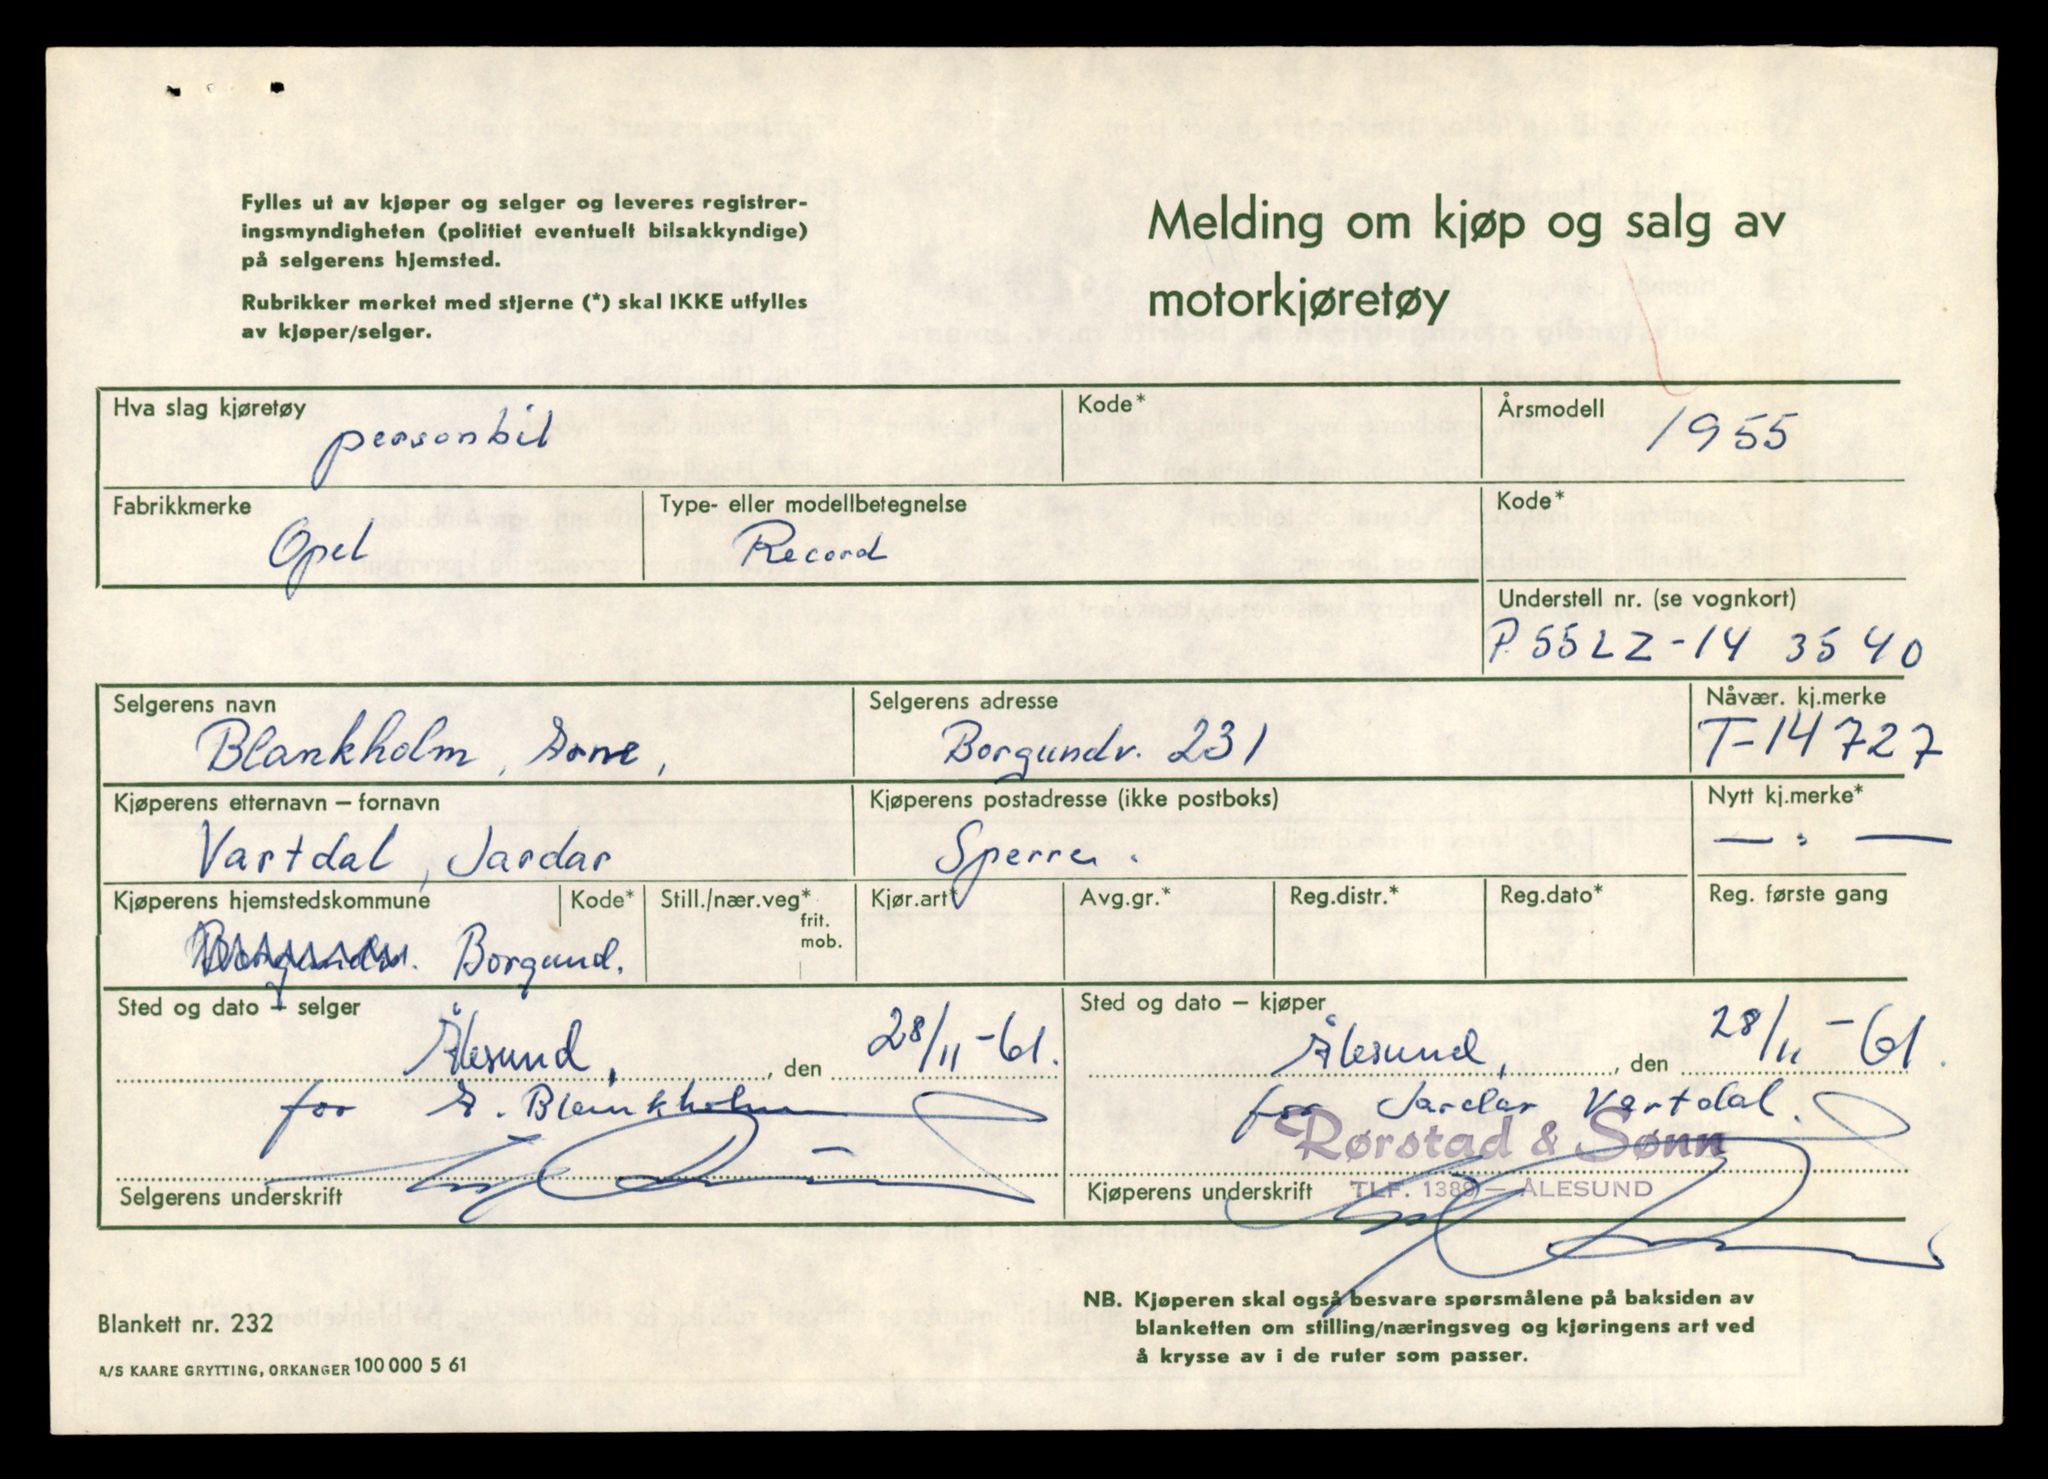 Fylles ut av kjøper og selger og leveres registrer-
ingsmyndigheten (politiet eventuelt bilsakkyndige)
på selgerens hjemsted.
Rubrikker merket med stjerne (*) skal IKKE utfylles
av kjøper/selger.
Melding om kjøp og salg av
motorkjøretøy
Hva slag kjøretøy
personbil
Kode*
Årsmodell
1955
Fabrikkmerke
Opel
Type- eller modellbetegnelse
Record
Kode*
Understell nr. (se vognkort)
P.55LZ-14 3540
Selgerens navn
Blankholm, Arne,
Selgerens adresse
Borgundv. 231
Nåvær. kj.merke
T-14727
Kjøperens etternavn – fornavn
Vartdal, Jardar
Kjøperens postadresse (ikke postboks)
Sperre.
Nytt kj.merke*
— " —
Kjøperens hjemstedskommune
Borgund.
Kode*
Still./nær.veg*
frit.
mob.
Kjør.art*
Avg.gr.*
Reg.distr.*
Reg.dato*
Reg. første gang
Sted og dato – selger
Ålesund, , den 28/11-61.
for A. Blankholm
Selgerens underskrift
Sted og dato – kjøper
Ålesund, , den 28/11-61.
for Jardar Vartdal.
Rørstad & Sønn
Kjøperens underskrift
TLF. 1389 — ÅLESUND
Blankett nr. 232
A/S KAARE GRYTTING, ORKANGER 100 000 5 61
NB. Kjøperen skal også besvare spørsmålene på baksiden av
blanketten om stilling/næringsveg og kjøringens art ved
å krysse av i de ruter som passer.